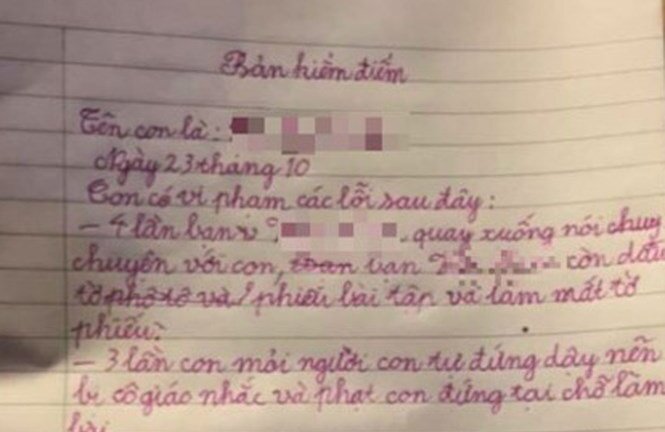 Bản hiểm điếm
Tên con là:
Ngày 23 tháng 10
Con có vi phạm các lỗi sau đây:
- 4 lần bạn quay xuống nói chuy
chuyện với con, bạn còn dấu
tờ phô tô và phiếu bài tập và làm mất tờ
phiếu.
- 3 lần con mỏi người con tự đứng dây nên
bị cô giáo nhắc và phạt con đứng tại chỗ làm
bài